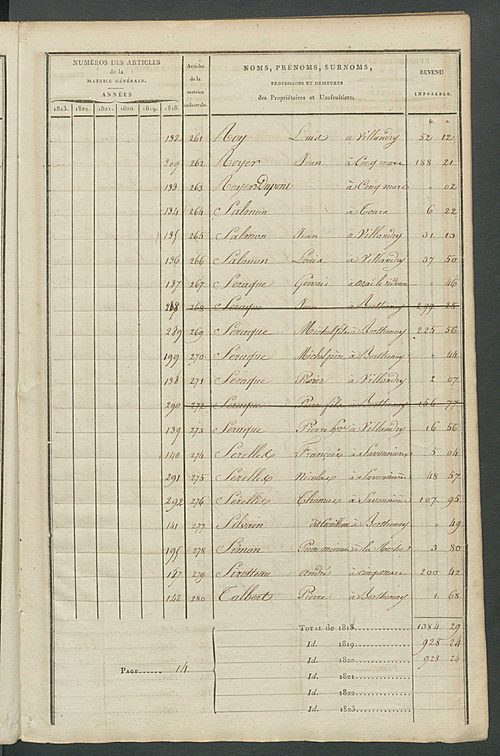 NUMÉROS DES ARTICLES
de la
MATRICE GÉNÉRALE.
ANNÉES
1823. 1822. 1821. 1820. 1819. 1818.
Articles
de la
matrice
cadastrale.
NOMS, PRÉNOMS, SURNOMS,
PROFESSIONS ET DEMEURES
des Propriétaires et Usufruitiers.
REVENU
IMPOSABLE.
fr. c.
132 261 Roy Louis à Villandry 52 12
209 262 Royer Jean à Cinq mars 188 21
133 263 Royer Dupont à Cinq mars 02
134 264 Salmon à Tours 6 22
135 265 Salmon Jean à Villandry 31 13
136 266 Salmon Louis à Villandry 37 50
137 267 Seraque Gervais 46
268 Seraque Jean à Berthenay 299 28
289 269 Seraque Michel fils à Berthenay 225 56
199 270 Seraque Michel père à Berthenay 44
138 271 Seraque Pierre à Villandry 2 07
290 272 Seraque Pierre fils à Berthenay 166 77
139 273 Seraque Pierre à Villandry 16 56
140 274 Serelles François à Savonnieres 5 04
291 275 Serelles Nicolas à Savonnieres 48 57
292 276 Serelles Thomas à Savonnieres 107 95
141 277 Silvain à Berthenay 49
195 278 Simon 3 80
147 279 Sirotteau André à Cinq mars 200 42
142 280 Talbert Pierre à Berthenay 1 68
TOTAL de 1818 1384 29
Id. 1819 928 24
Id. 1820 928 24
PAGE 14
Id. 1821
Id. 1822
Id. 1823